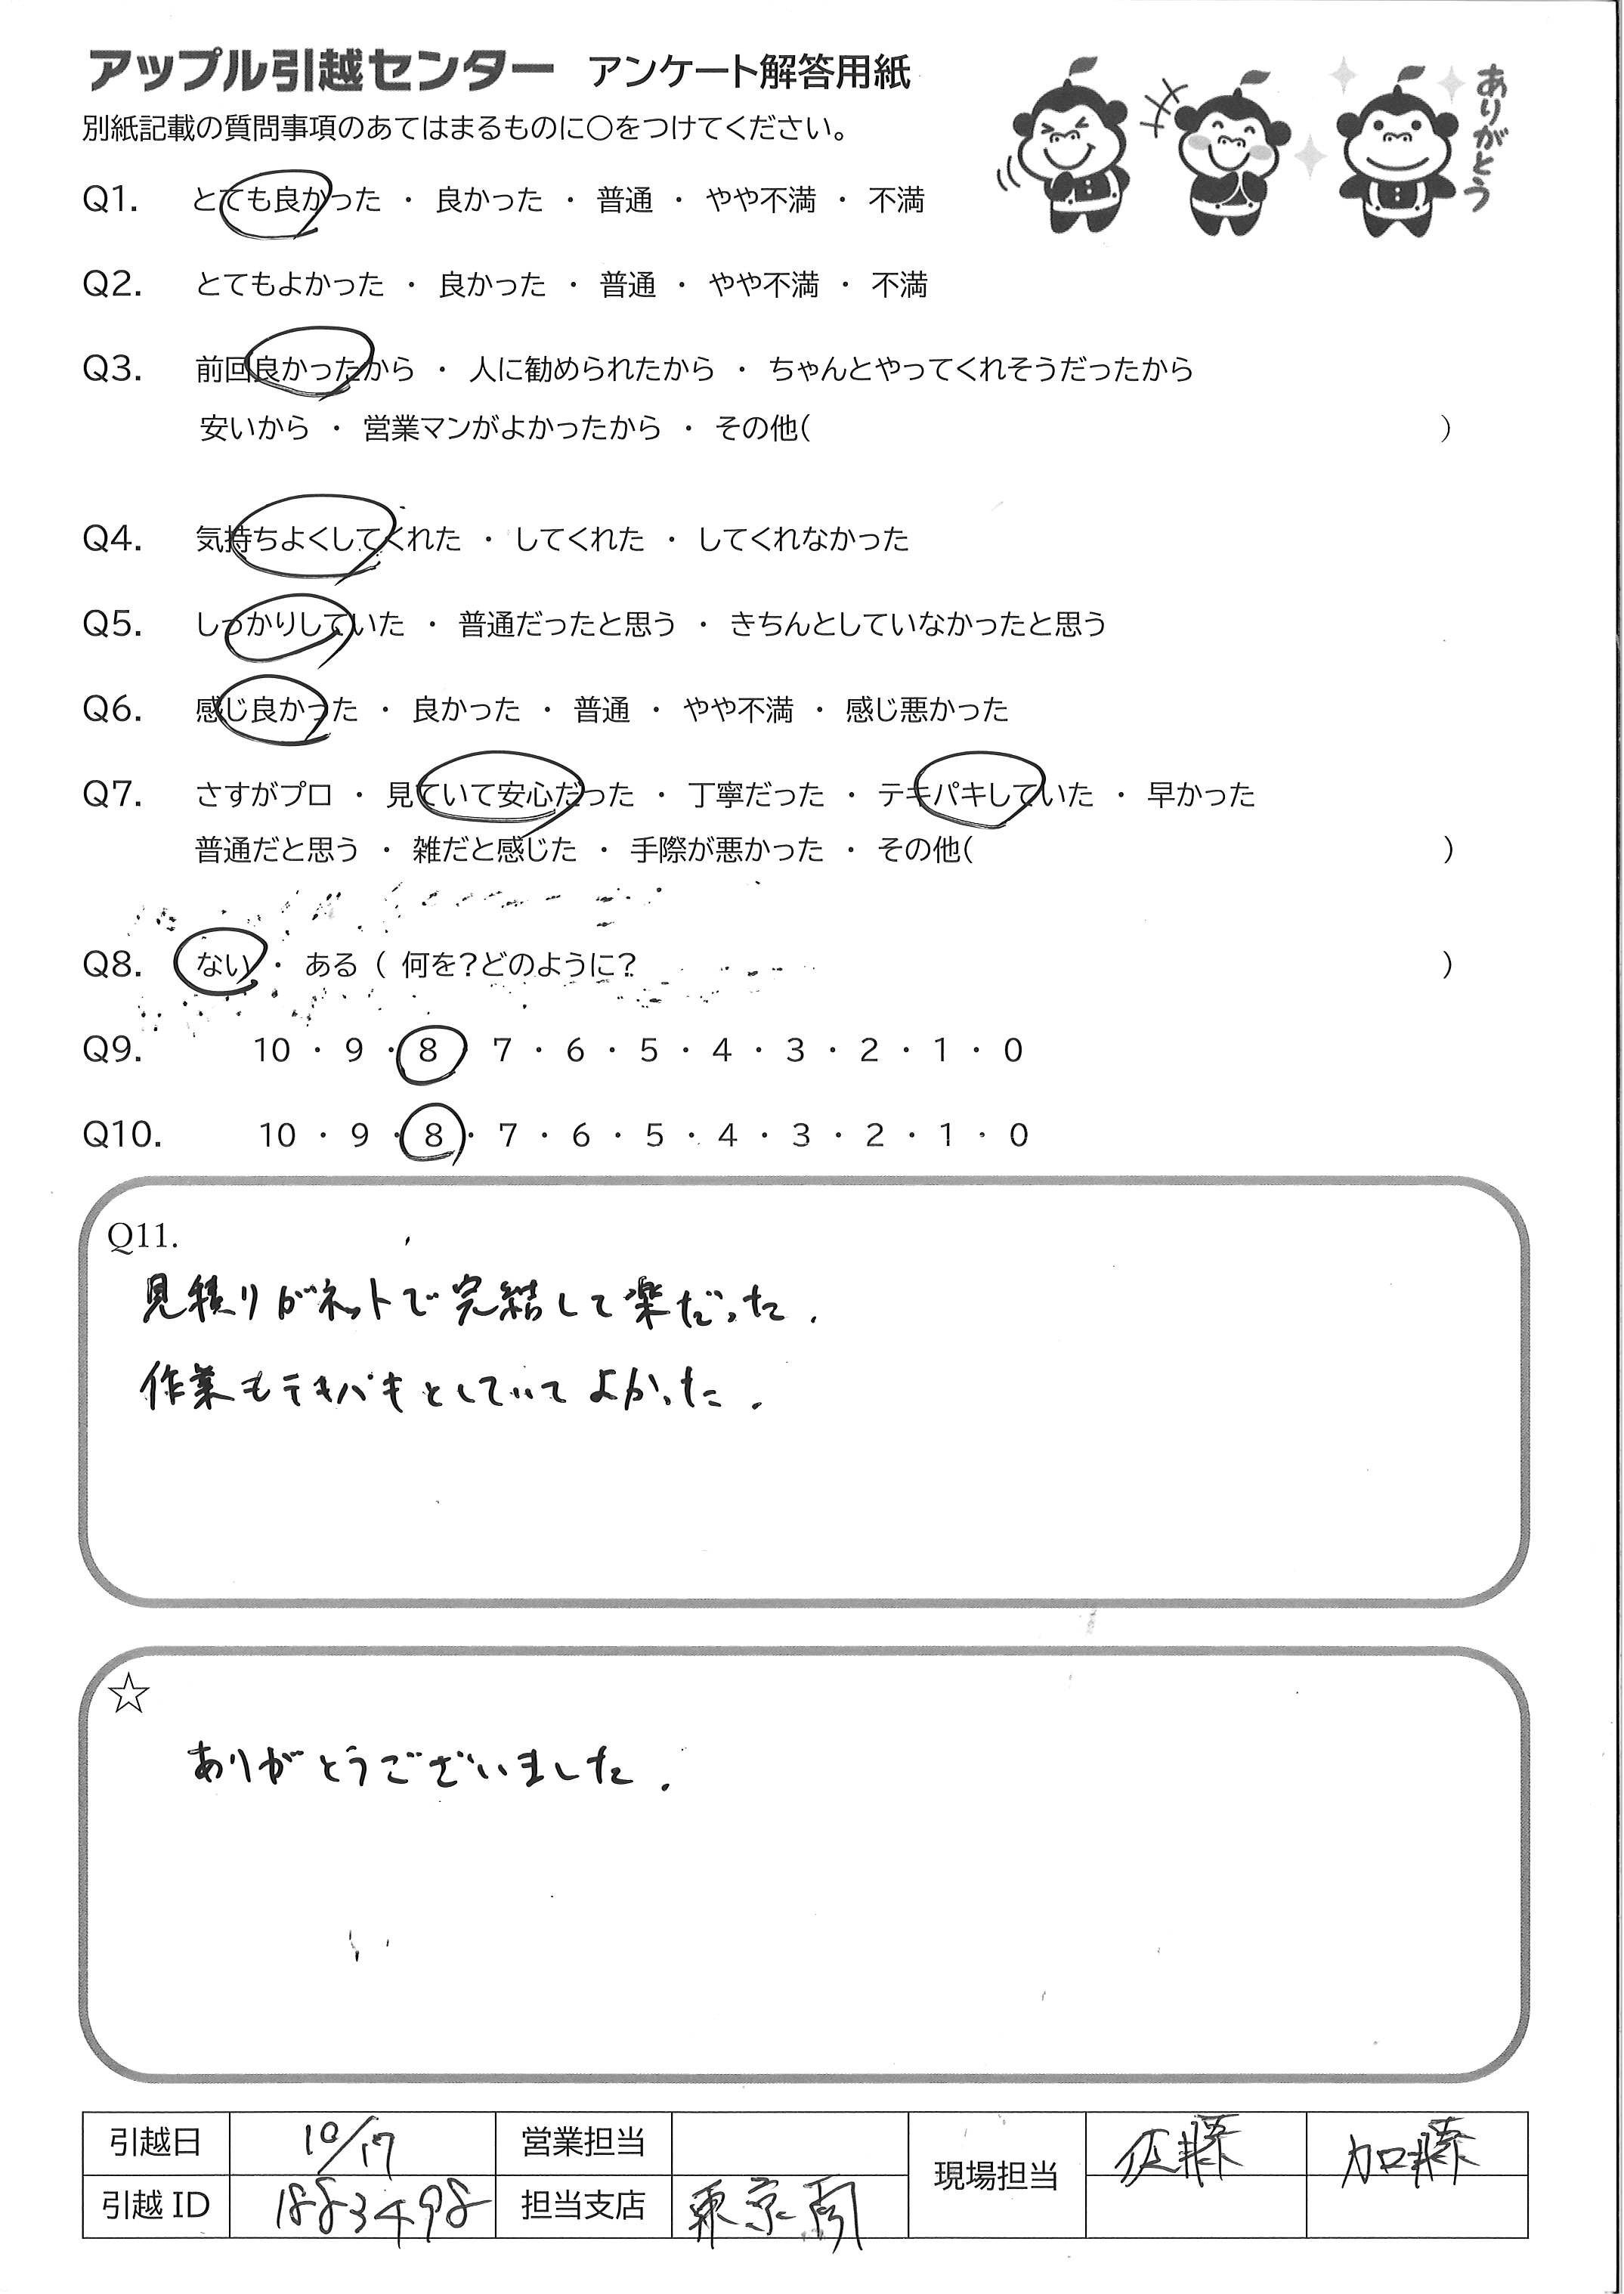 アップル引越センター アンケート解答用紙
ありがとう
別紙記載の質問事項のあてはまるものに○をつけてください。
Q1. とても良かった ・ 良かった ・ 普通 ・ やや不満 ・ 不満
Q2. とてもよかった ・ 良かった ・ 普通 ・ やや不満 ・ 不満
Q3. 前回良かったから ・ 人に勧められたから ・ ちゃんとやってくれそうだったから
安いから ・ 営業マンがよかったから ・ その他( )
Q4. 気持ちよくしてくれた ・ してくれた ・ してくれなかった
Q5. しっかりしていた ・ 普通だったと思う ・ きちんとしていなかったと思う
Q6. 感じ良かった ・ 良かった ・ 普通 ・ やや不満 ・ 感じ悪かった
Q7. さすがプロ ・ 見ていて安心だった ・ 丁寧だった ・ テキパキしていた ・ 早かった
普通だと思う ・ 雑だと感じた ・ 手際が悪かった ・ その他( )
Q8. ない ・ ある ( 何を?どのように? )
Q9. 10 ・ 9 ・ 8 7 ・ 6 ・ 5 ・ 4 ・ 3 ・ 2 ・ 1 ・ 0
Q10. 10 ・ 9 ・ 8 ・ 7 ・ 6 ・ 5 ・ 4 ・ 3 ・ 2 ・ 1 ・ 0
Q11.
見積りがネットで完結して楽だった.
作業もテキパキとしていてよかった.
☆
ありがとうございました.
引越日 10/17 営業担当 現場担当 佐藤 加藤
引越 ID 1883498 担当支店 東京